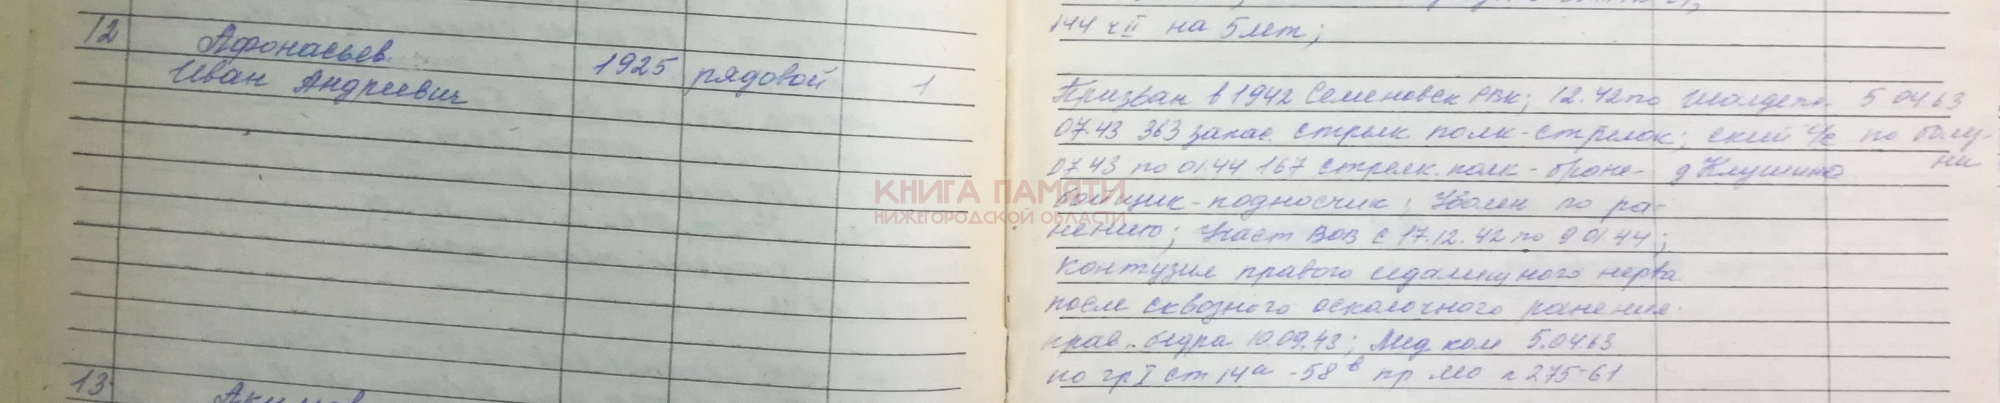 144 ч II на 5 лет;
12 Афонасьев
Иван Андреевич 1925 рядовой 1
Призван в 1942 Семеновск РВК; 12.42 по 5.04.63
07.43 363 запас. стрелк. полк - стрелок; ский с/с по болу-
07.43 по 01.44 167 стрелк. полк - броне- д Клушино ни
бойщик - подносчик; Уволен по ра-
нению; Участ ВОВ с 17.12.42 по 9.01.44;
КНИГА ПАМЯТИ
НИЖЕГОРОДСКОЙ ОБЛАСТИ
Контузия правого седалищного нерва
после сквозного осколочного ранения
прав. бедра 10.09.43; Мед ком 5.04.63
по гр I ст 14а - 58в пр МО н 275-61
13